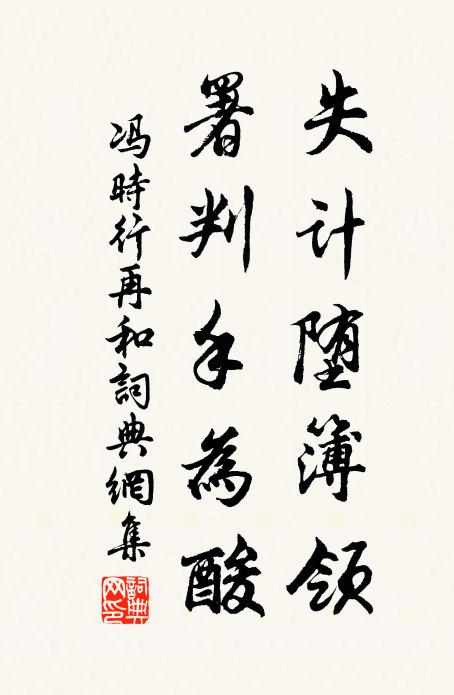 失计堕簿领
署判手為酸
冯時行再和詞典網集
詞典网印